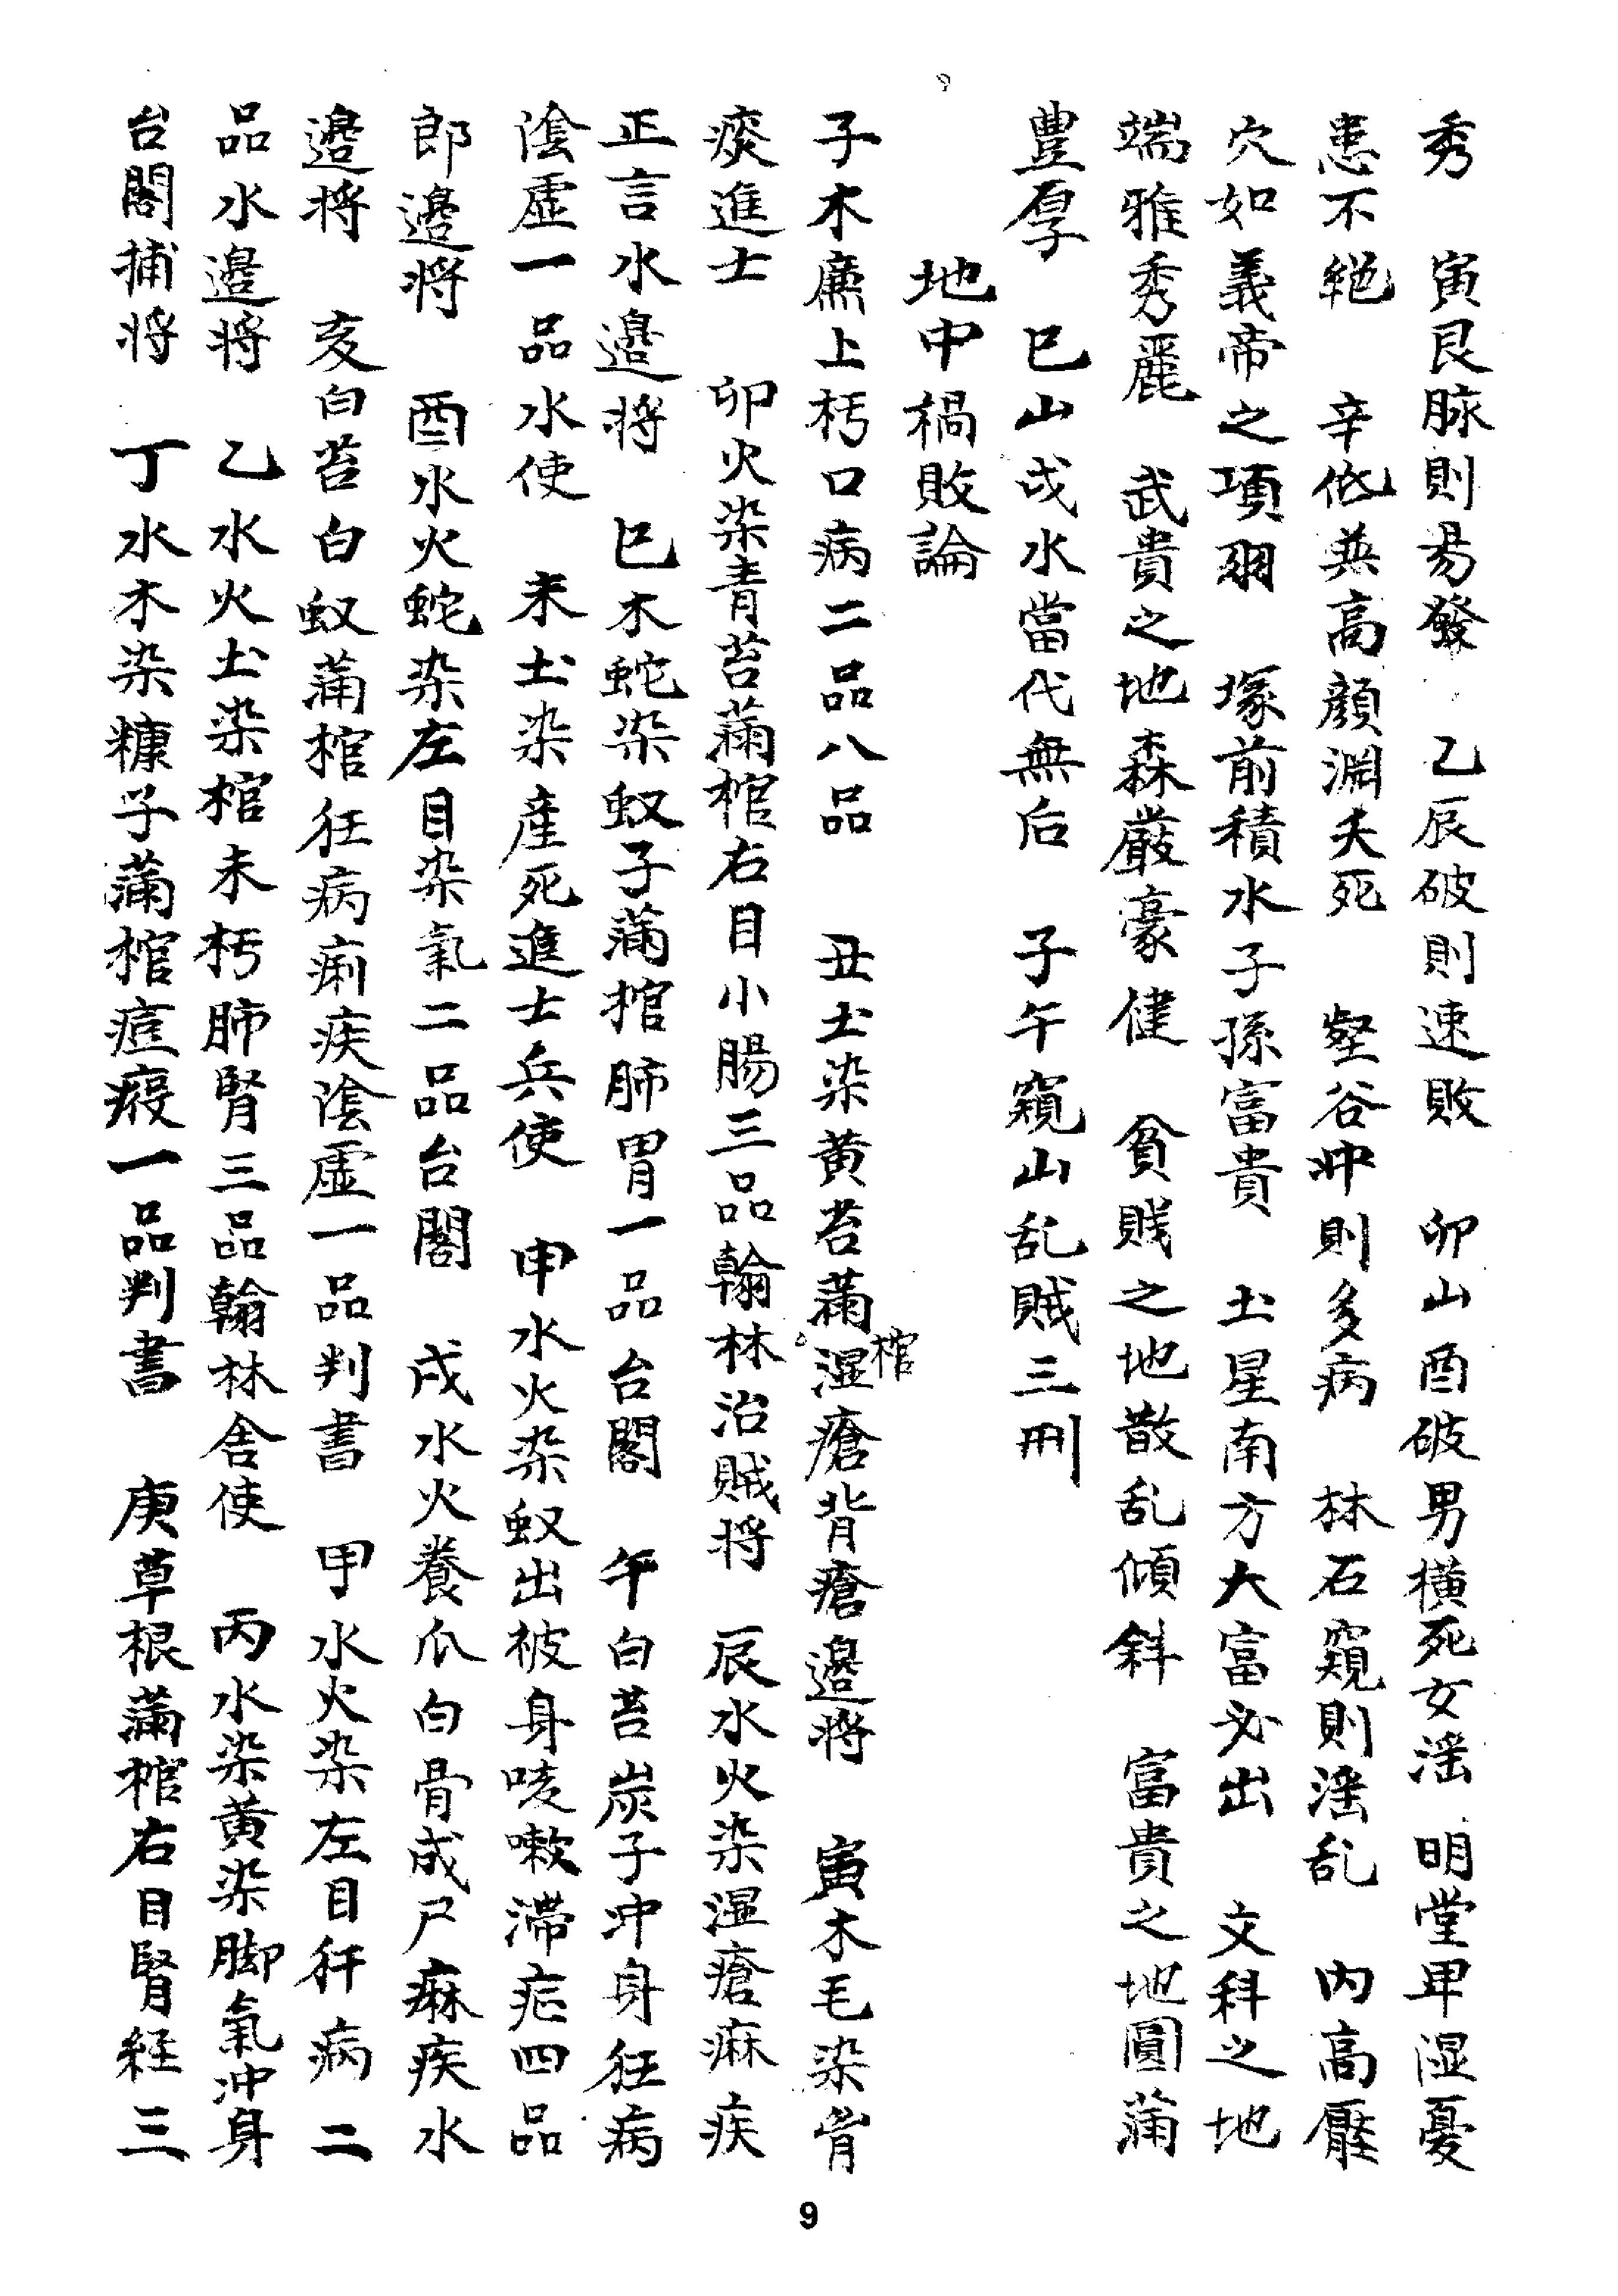 秀 寅艮脉則易發 乙辰破則速敗 卯山酉破男橫死女淫 明堂卑湿憂
患不絕 辛依巽高顔渊夭死 壑谷冲則多病 林石窺則淫乱 内高壓
穴如義帝之項羽 塚前積水子孫富貴 土星南方大富必出 文科之地
端雅秀麗 武貴之地森嚴豪健 貧賎之地散乱傾斜 富貴之地圓滿
豊厚 巳山戌水當代無后 子午窺山乱賊三刑
地中禍敗論
子木廉上朽口病二品八品 丑土染黄苔滿棺湿瘡背瘡邉将 寅木毛染背
痰進士 卯火染青苔滿棺右目小腸三品翰林治賊将 辰水火染湿瘡痳疾
正言水邉将 巳木蛇染蚁子滿棺肺胃一品台閣 午白苔炭子冲身狂病
陰虛一品水使 未土染産死進士兵使 甲水火染蚁出被身咳嗽滯症四品
郎邉将 酉水火蛇染左目染氣二品台閣 戌水火養爪白骨成尸痳疾水
邉将 亥白苔白蚁滿棺狂病痢疾陰虛一品判書 甲水火染左目肝病二
品水邉将 乙水火土染棺未朽肺腎三品翰林舍使 丙水染黄染脚氣冲身
台閣捕将 丁水木染糠子滿棺痘瘢一品判書 庚草根滿棺右目腎経三
9